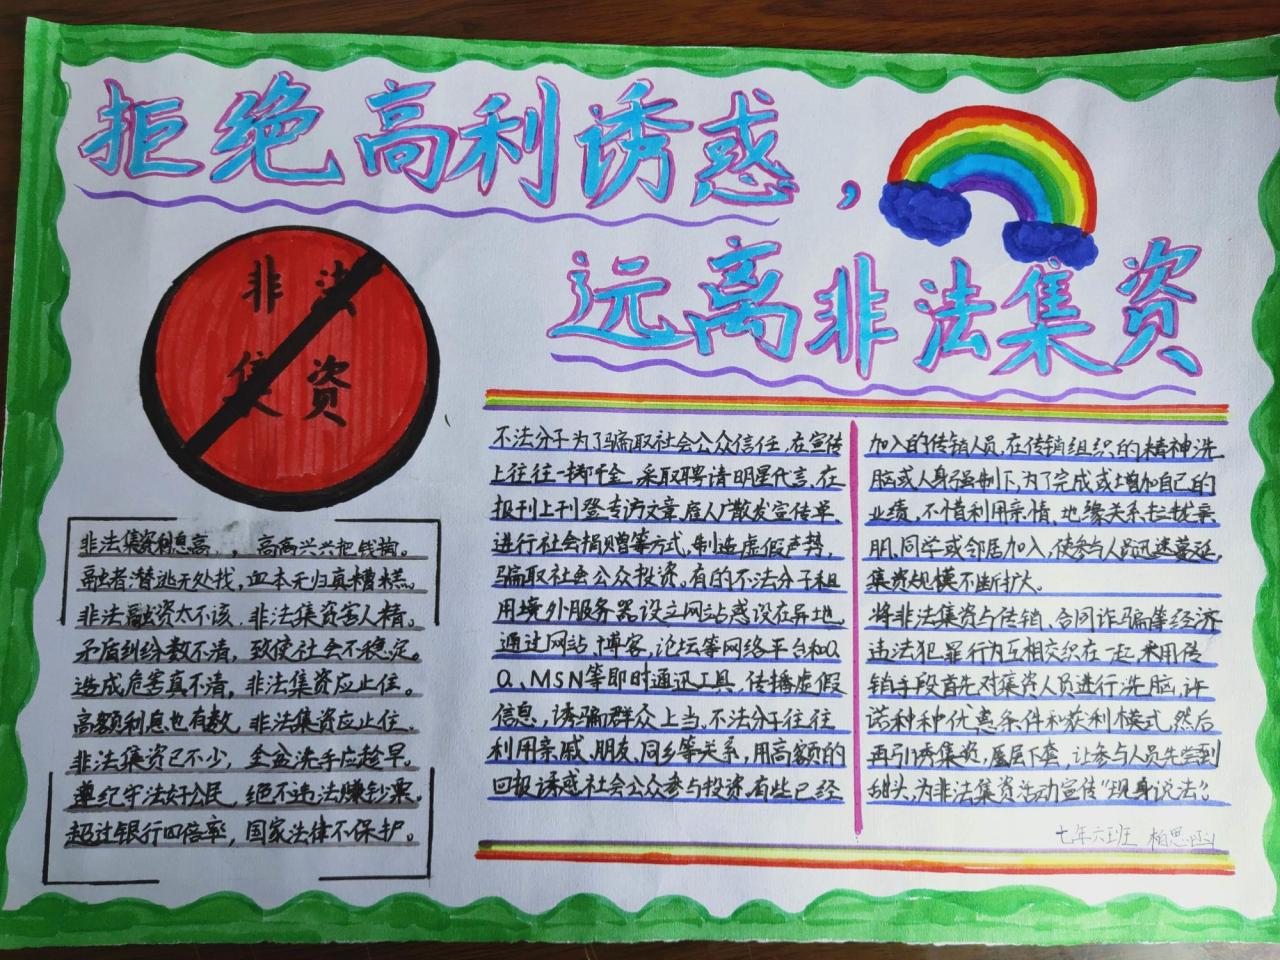 拒绝高利诱惑，
远离非法集资
非法
集资
非法集资利息高，，高高兴兴把钱掏。
融者潜逃无处找，血本无归真糟糕。
非法融资太不该，非法集资害人精。
矛盾纠纷数不清，致使社会不稳定。
造成危害真不清，非法集资应止住。
高额利息也有数，非法集资应止住。
非法集资已不少，金盆洗手应趁早。
遵纪守法好公民，绝不违法赚钞票。
超过银行四倍率，国家法律不保护。
不法分子为了骗取社会公众信任，在宣传
上往往一掷千金，采取聘请明星代言、在
报刊上刊登专访文章、雇人广散发宣传单、
进行社会捐赠等方式，制造虚假声势，
骗取社会公众投资。有的不法分子租
用境外服务器设立网站或设在异地，
通过网站、博客、论坛等网络平台和Q
Q、MSN等即时通讯工具，传播虚假
信息，诱骗群众上当。不法分子往往
利用亲戚、朋友、同乡等关系，用高额的
回报诱惑社会公众参与投资。有些已经
加入的传销人员，在传销组织的精神洗
脑或人身强制下，为了完成或增加自己的
业绩，不惜利用亲情、地缘关系拉拢亲
朋、同学或邻居加入，使参与人员迅速蔓延，
集资规模不断扩大。
将非法集资与传销、合同诈骗等经济
违法犯罪行为互相交织在一起，采用传
销手段首先对集资人员进行洗脑，许
诺种种优惠条件和获利模式，然后
再引诱集资，层层下套，让参与人员先尝到
甜头，为非法集资活动宣传“现身说法”。
七年六班 柏思